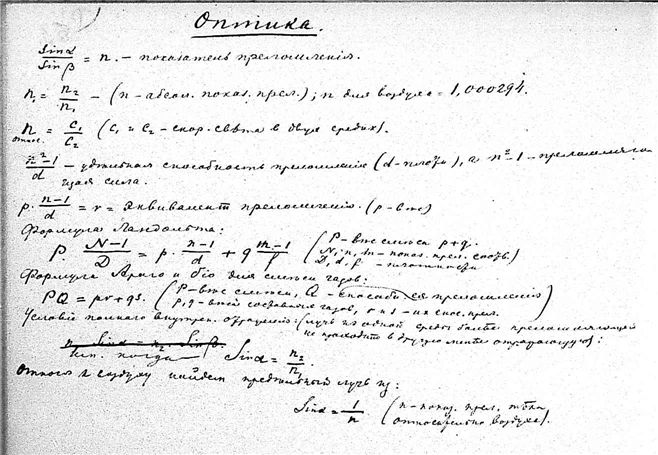 Оптика.
Sin α / Sin β = n. – показатель преломленія.
n₁ = n₂/n₁ – (n – абсол. показ. прел.); n для воздуха = 1,000294.
n относ. = c₁/c₂ (c₁ и c₂ – скор. свѣта в двух средах).
n²-1/d – удѣльная способность преломленія (d – плотн), а n²-1 – преломляю
щая сила.
p. n-1/d = r = эквивалент преломленія. (p – вѣс)
Формула Ландольта:
P. N-1/D = p. n-1/d + q m-1/f (P – вѣс смѣси p+q.
N, n, m – показ. прел. соотв.
D, d, f – плотности
Формула Араго и Біо для смѣси газов:
PQ = pr + qs. (P – вѣс смѣси, Q – способн. ея преломленія)
p, q – вѣсы составных газов, r и s – их спос. прел.
Условіе полнаго внутрен. отраженія: (лучъ из одной среды болѣе преломляющей
не проходит в другую менѣе
Sin α = n₂/n₁.
Относ. к воздуху найдем предѣльный лучъ из:
Sin α = 1/n (n – показ. прел. тѣла
относительно воздуха).